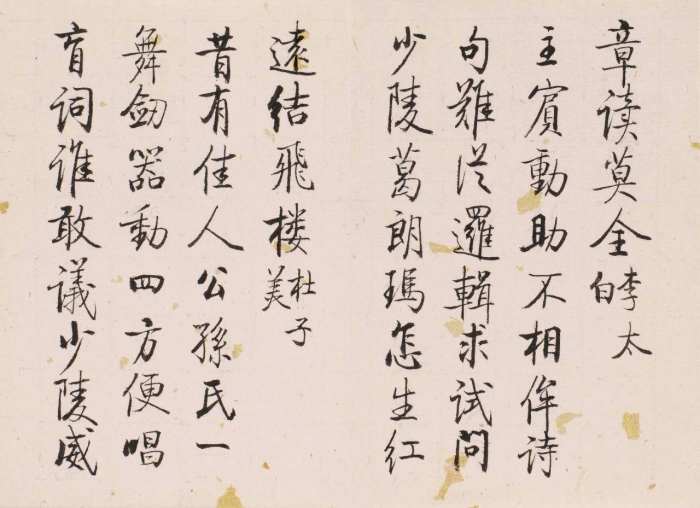 章读莫全李太白
主賓動助不相侔诗
句難従邏輯求试問
少陵葛朗瑪怎生红
遠结飛楼杜子美
昔有佳人公孫氏一
舞劔器動四方便唱
盲词谁敢議少陵威